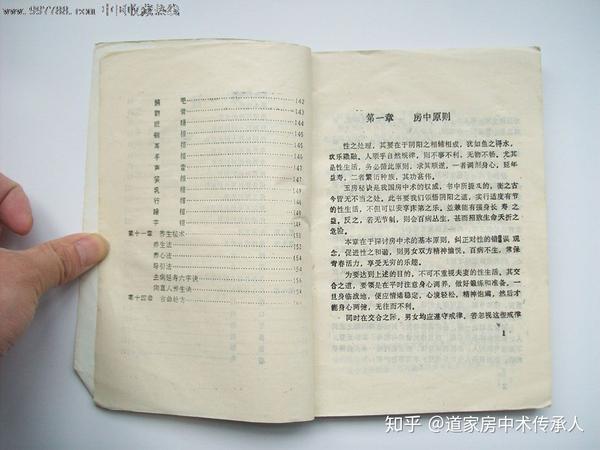 www.997788.com 中国收藏热线
142
143
144
144
145
耳 相 145
手 相 146
声 音 146
相 147
乳 相 147
行 相 148
相 148
149
第十一章 养生秘术 151
养生法 151
养心法 152
导引法 153
去病延寿六字诀 154
154
第十四章 古曲处方
第一章 房中原则
性之处理，其要在于阴阳之相辅相成，犹如鱼之得水，
欢乐融融。人顺乎自然规律，则不事不利，无物不畅。尤其
是性生活，务必循此原则，求其顺遂，一者调剂身心，延年
益寿，二者繁衍种族，其功甚伟。
玉房秘诀是我国房中术的权威，书中所提及的，衡之古
今皆无不当之处。此乃我们领悟阴阳之道，实行适度有节
的性生活，不但可以安享床第之乐，并兼能有强身长寿之
益。反之，若无节制，则会百病丛生，甚而招致生命夭折之
危险。
本章在于探讨房中术的基本原则，纠正对性的错误观
念，促进性之和谐，则男女双方精神愉悦，百病不生，常保
青春活力，享受无穷的乐趣。
为要达到上述的目的，不可不重视夫妻的性生活。其交
合之道，要领是在于平时注意身心调养，做好锻炼和准备，一
旦身临战地，便应情绪稳定，心境轻松，精神饱满，然后才
能身心两健，无往而不利。
同时在交合之际，男女均应遵守戒律，若忽视这些戒律
1
知乎 @道家房中术传承人